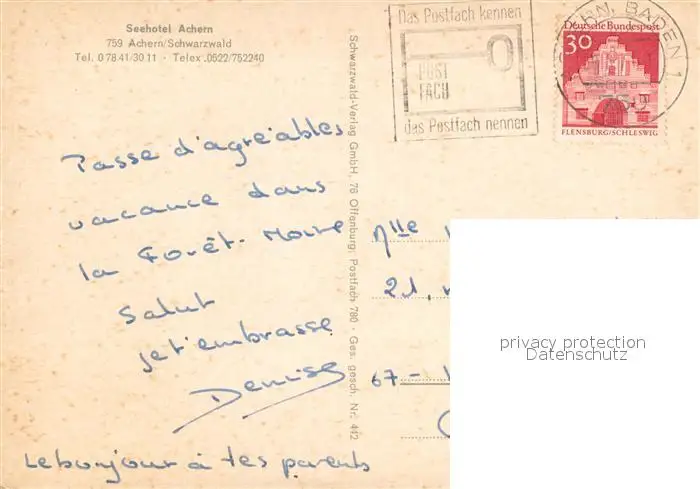 Seehotel Achern
759 Achern/Schwarzwald
Tel. 0 78.41/30 11 · Telex .0522/752240
Das Postfach kennen
POST
FACH
das Postfach nennen
ERN, BADEN 1
759
Deutsche Bundespost
30
FLENSBURG/SCHLESWIG
Schwarzwald-Verlag GmbH, 76 Offenburg, Postfach 780 · Ges. gesch. Nr. 442
Passe d'agréables
vacance dans
la Forêt-Noire
Salut
je t'embrasse
Denise
Le bonjour à tes parents
Mlle
21,
67-
privacy protection
Datenschutz